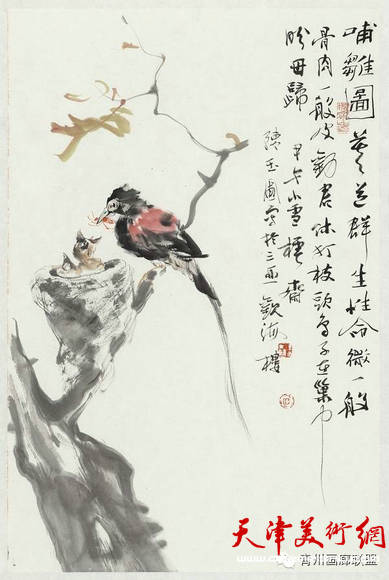 哺雛圖 莫道群生性命微一般
骨肉一般皮勸君休打枝頭鳥子在巢中
盼母歸
甲午小雪 齋
張玉圃寫於三 樓
天津美術網
青州画廊联盟